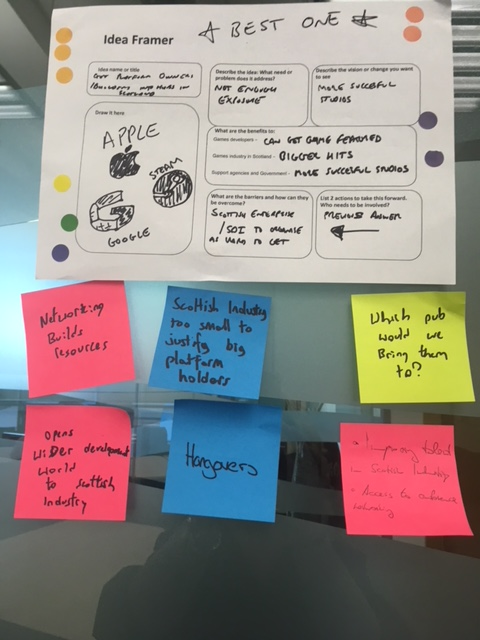 Idea Framer
A BEST ONE
Idea name or title
GET PLATFORM OWNERS
Describe the idea: What need or
problem does it address?
NOT ENOUGH
EXPOSURE
Describe the vision or change you want
to see
MORE SUCCESFUL
STUDIOS
Draw it here
APPLE
STEAM
GOOGLE
What are the benefits to:
Games developers - CAN GET GAME FEATURED
Games industry in Scotland - BIGGER HITS
Support agencies and Government - MORE SUCCESFUL STUDIOS
What are the barriers and how can they
be overcome?
SCOTTISH ENTERPRISE
/SDI TO ORGANISE
AS HARD TO GET
List 2 actions to take this forward.
Who needs to be involved?
PREVIOUS ANSWER
Networking
Builds
resources
Scottish Industry
too small to
justify big
platform
holders
Which pub
would we
Bring them
to?
Opens
wider development
world
to Scottish
Industry
Hangovers
Scottish Industry
Access to